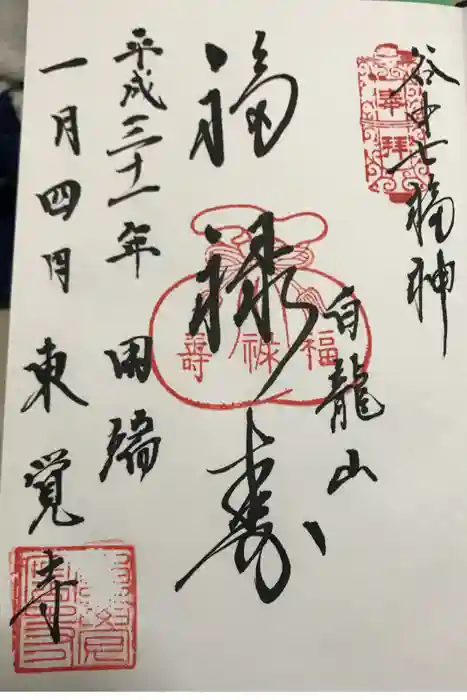 谷中七福神
奉拝
白龍山
福禄寿
福禄壽
平成三十一年 田端
一月四日 東覚寺